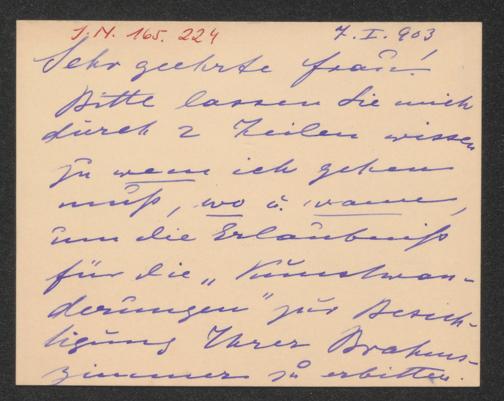 J.N. 165.224 7. I. 903
Sehr geehrte Frau!
Bitte lassen Sie mich
durch 2 Zeilen wissen
zu wem ich gehen
muß, wo u. wann,
um die Erlaubniß
für die „Kunstwan-
derungen" zur Besich-
tigung Ihrer Brahms-
zimmer zu erbitten.